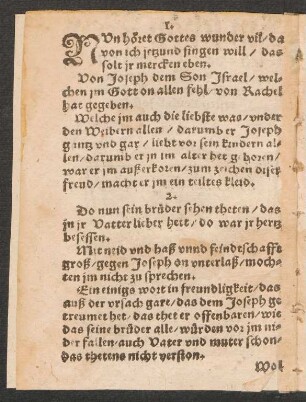 1.
NUn höret Gottes wunder vil/da
von ich jetzund singen will / das
solt jr mercken eben.
Von Joseph dem Son Israel/wel-
chen jm Gott on allen fehl/von Rachel
hat gegeben.
Welche jm auch die liebste was/vnder
den Weibern allen / darumb er Joseph
gantz vnd gar / liebt vor sein kindern al-
len/darumb er jn im alter het geboren/
war er jm außerkoren/zum zeichen diser
freud/macht er jm ein teiltes kleid.
2.
Do nun sein brüder sehen theten/das
jn jr Vatter lieber hett/do war jr hertz
besessen.
Mit neid vnd haß vnnd feindtschafft
groß/gegen Joseph on vnterlaß/moch-
ten jm nicht zu sprechen.
Ein einigs wort in freundligkeit/das
auß der vrsach gare/das dem Joseph ge
treumet het/das thet er offenbaren/wie
das seine brüder alle/würden vor jm ni-
der fallen/auch Vater vnd muter schon/
das thetens nicht verston.
Wol